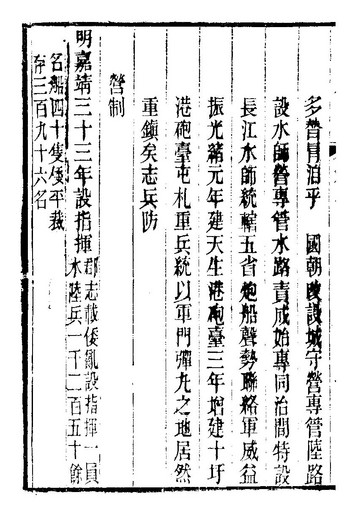 多瞀冒洎乎　國朝改設城守營專管陸路
設水師營專管水路責成始專同治間特設
長江水師統轄五省炮船聲勢聯絡軍威益
振光緒元年建天生港砲臺三年增建十圩
港砲臺屯札重兵統以軍門彈丸之地居然
重鎮矣志兵防
營制
明嘉靖三十三年設指揮郡志載倭亂設指揮一員
水陸兵一千二百五十餘
名船四十隻倭平裁
存三百九十六名